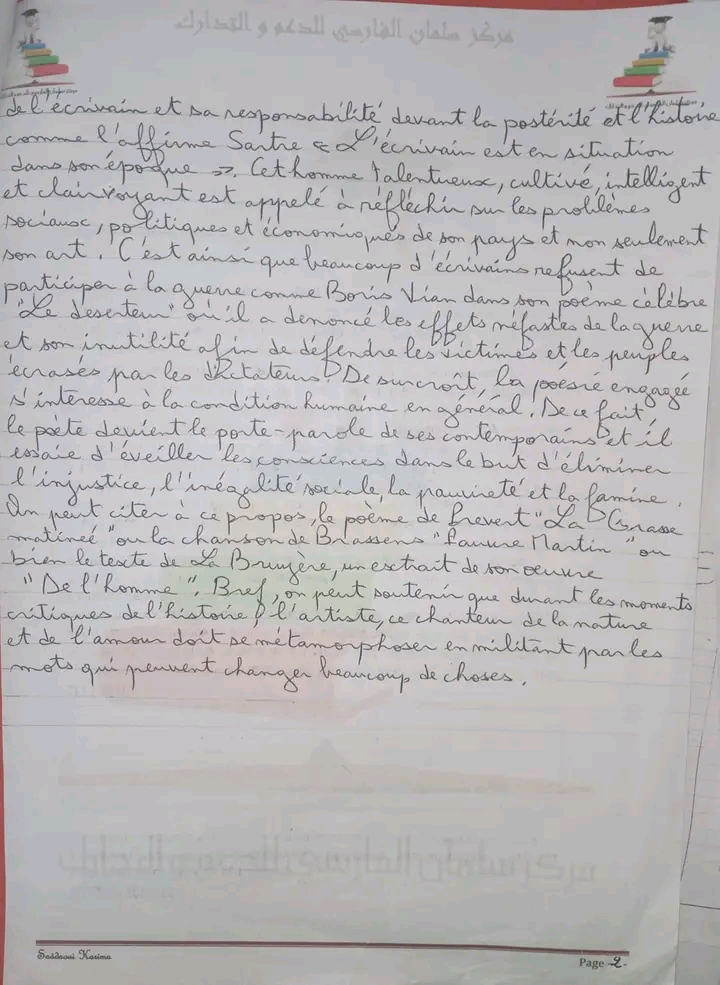 مركز سلمان الفارسي للدعم و التدارك
de l'écrivain et sa responsabilité devant la postérité et l'histoire
comme l'affirme Sartre « L'écrivain est en situation
dans son époque ». Cet homme talentueux, cultivé, intelligent
et clairvoyant est appelé à réfléchir sur les problèmes
sociaux, politiques et économiques de son pays et non seulement
son art. C'est ainsi que beaucoup d'écrivains refusent de
participer à la guerre comme Boris Vian dans son poème célèbre
"Le deserteur" où il a denoncé les effets néfastes de la guerre
et son inutilité afin de défendre les victimes et les peuples
écrasés par les dictateurs. De surcroît, la poésie engagée
s'intéresse à la condition humaine en général. De ce fait,
le poète devient le porte-parole de ses contemporains et il
essaie d'éveiller les consciences dans le but d'éliminer
l'injustice, l'inégalité sociale, la pauvreté et la famine.
On peut citer à ce propos, le poème de Prevert "La Grasse
matineé" ou la chanson de Brassens "Pauvre Martin" ou
bien le texte de La Bruyère, un extrait de son œuvre
"De l'homme". Bref, on peut soutenir que durant les moments
critiques de l'histoire, l'artiste, ce chanteur de la nature
et de l'amour doit se métamorphoser en militant par les
mots qui peuvent changer beaucoup de choses.
مركز سلمان الفارسي للدعم و التدارك
Saâdaoui Karima
Page -2-